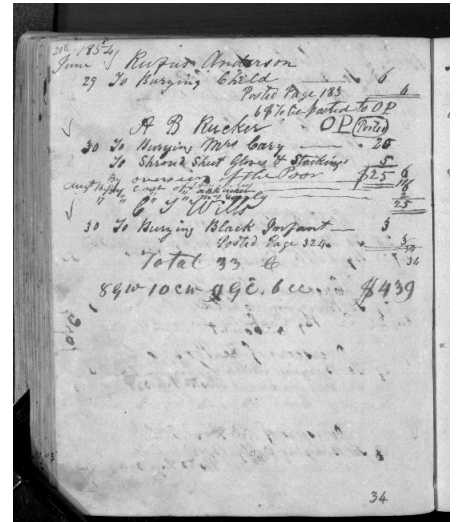 1854
June Rufus Anderson
29 To Burying Child 6
Posted Page 183 6
to be posted to OP
A B Rucker OP Posted
30 To Burying Mrs Cary 20
To Shroud Sheet Gloves & Stockings 5
By overseers of the Poor $25
25
C Wills
30 To Burying Black Infant 3
Posted Page 324 3
34
Total 33 C 34
89W 10CW 99C. 6CC. $439
34